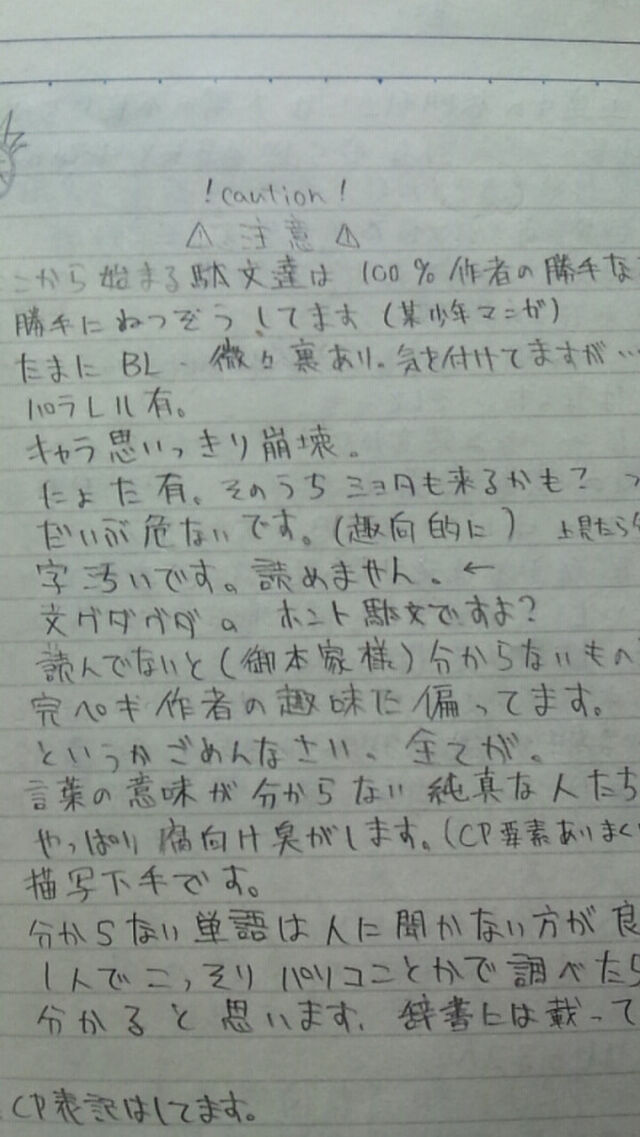 !caution!
⚠ 注意 ⚠
こから始まる駄文達は 100%作者の勝手な
勝手にねつぞうしてます(某少年マンガ)
たまにBL・微々裏あり。気を付けてますが…
パラレル有。
キャラ思いっきり崩壊。
にょた有。そのうちショタも来るかも?
だいぶ危ないです。(趣向的に) 上見たら
字汚いです。読めません。←
文グダグダ。ホント駄文ですよ?
読んでないと(御本家様)分からないもの
完ペキ作者の趣味に偏ってます。
というかごめんなさい、全てが。
言葉の意味が分からない純真な人たち
やっぱり腐向け臭がします。(CP要素ありまく
描写下手です。
分からない単語は人に聞かない方が良
1人でこっそりパソコンとかで調べたら
分かると思います。辞書には載って
CP表記はしてます。